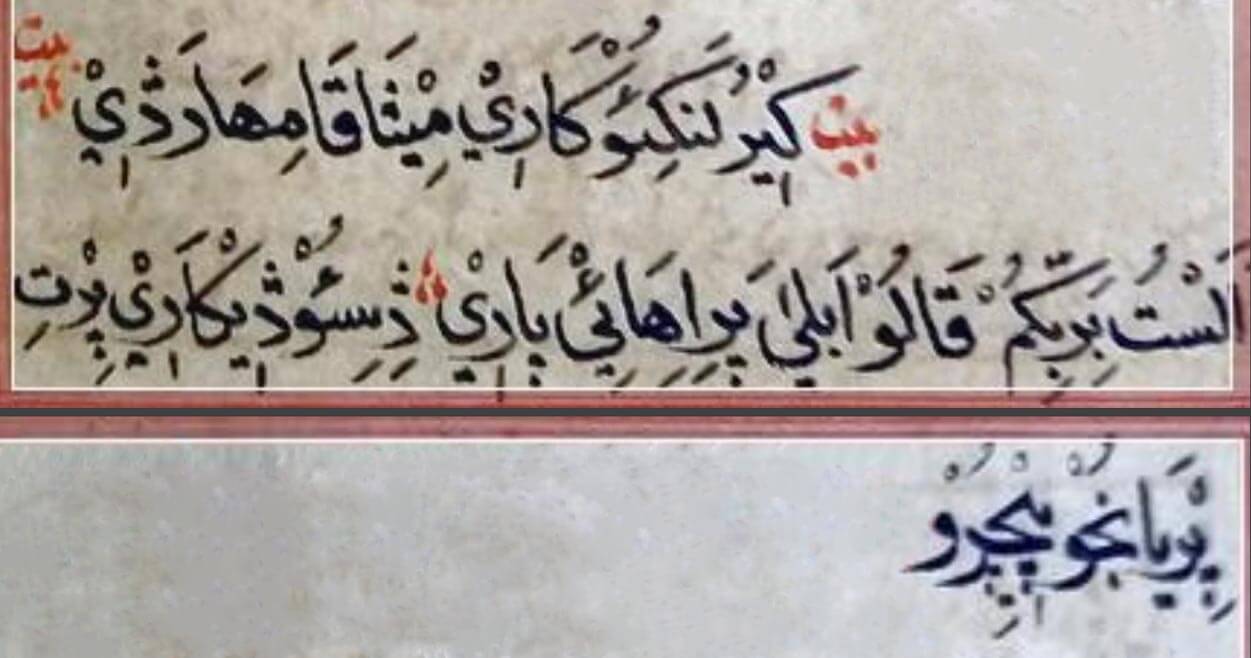 بيت كِيْرُ لَنكِئَوْ كَارِيْ مِيْثَاقَا مِهَارَڎِيْ بيت
اَلَسْتُ بَرِبِّكُمْ قَالُوْا بَلىٰ پِرِاهَائِيْ بَارِيْ ڎِسِئُوْ ڎِيكَارِيْ پِرْتِ
پِرْيَا نجُوْ پِجِرُوْ